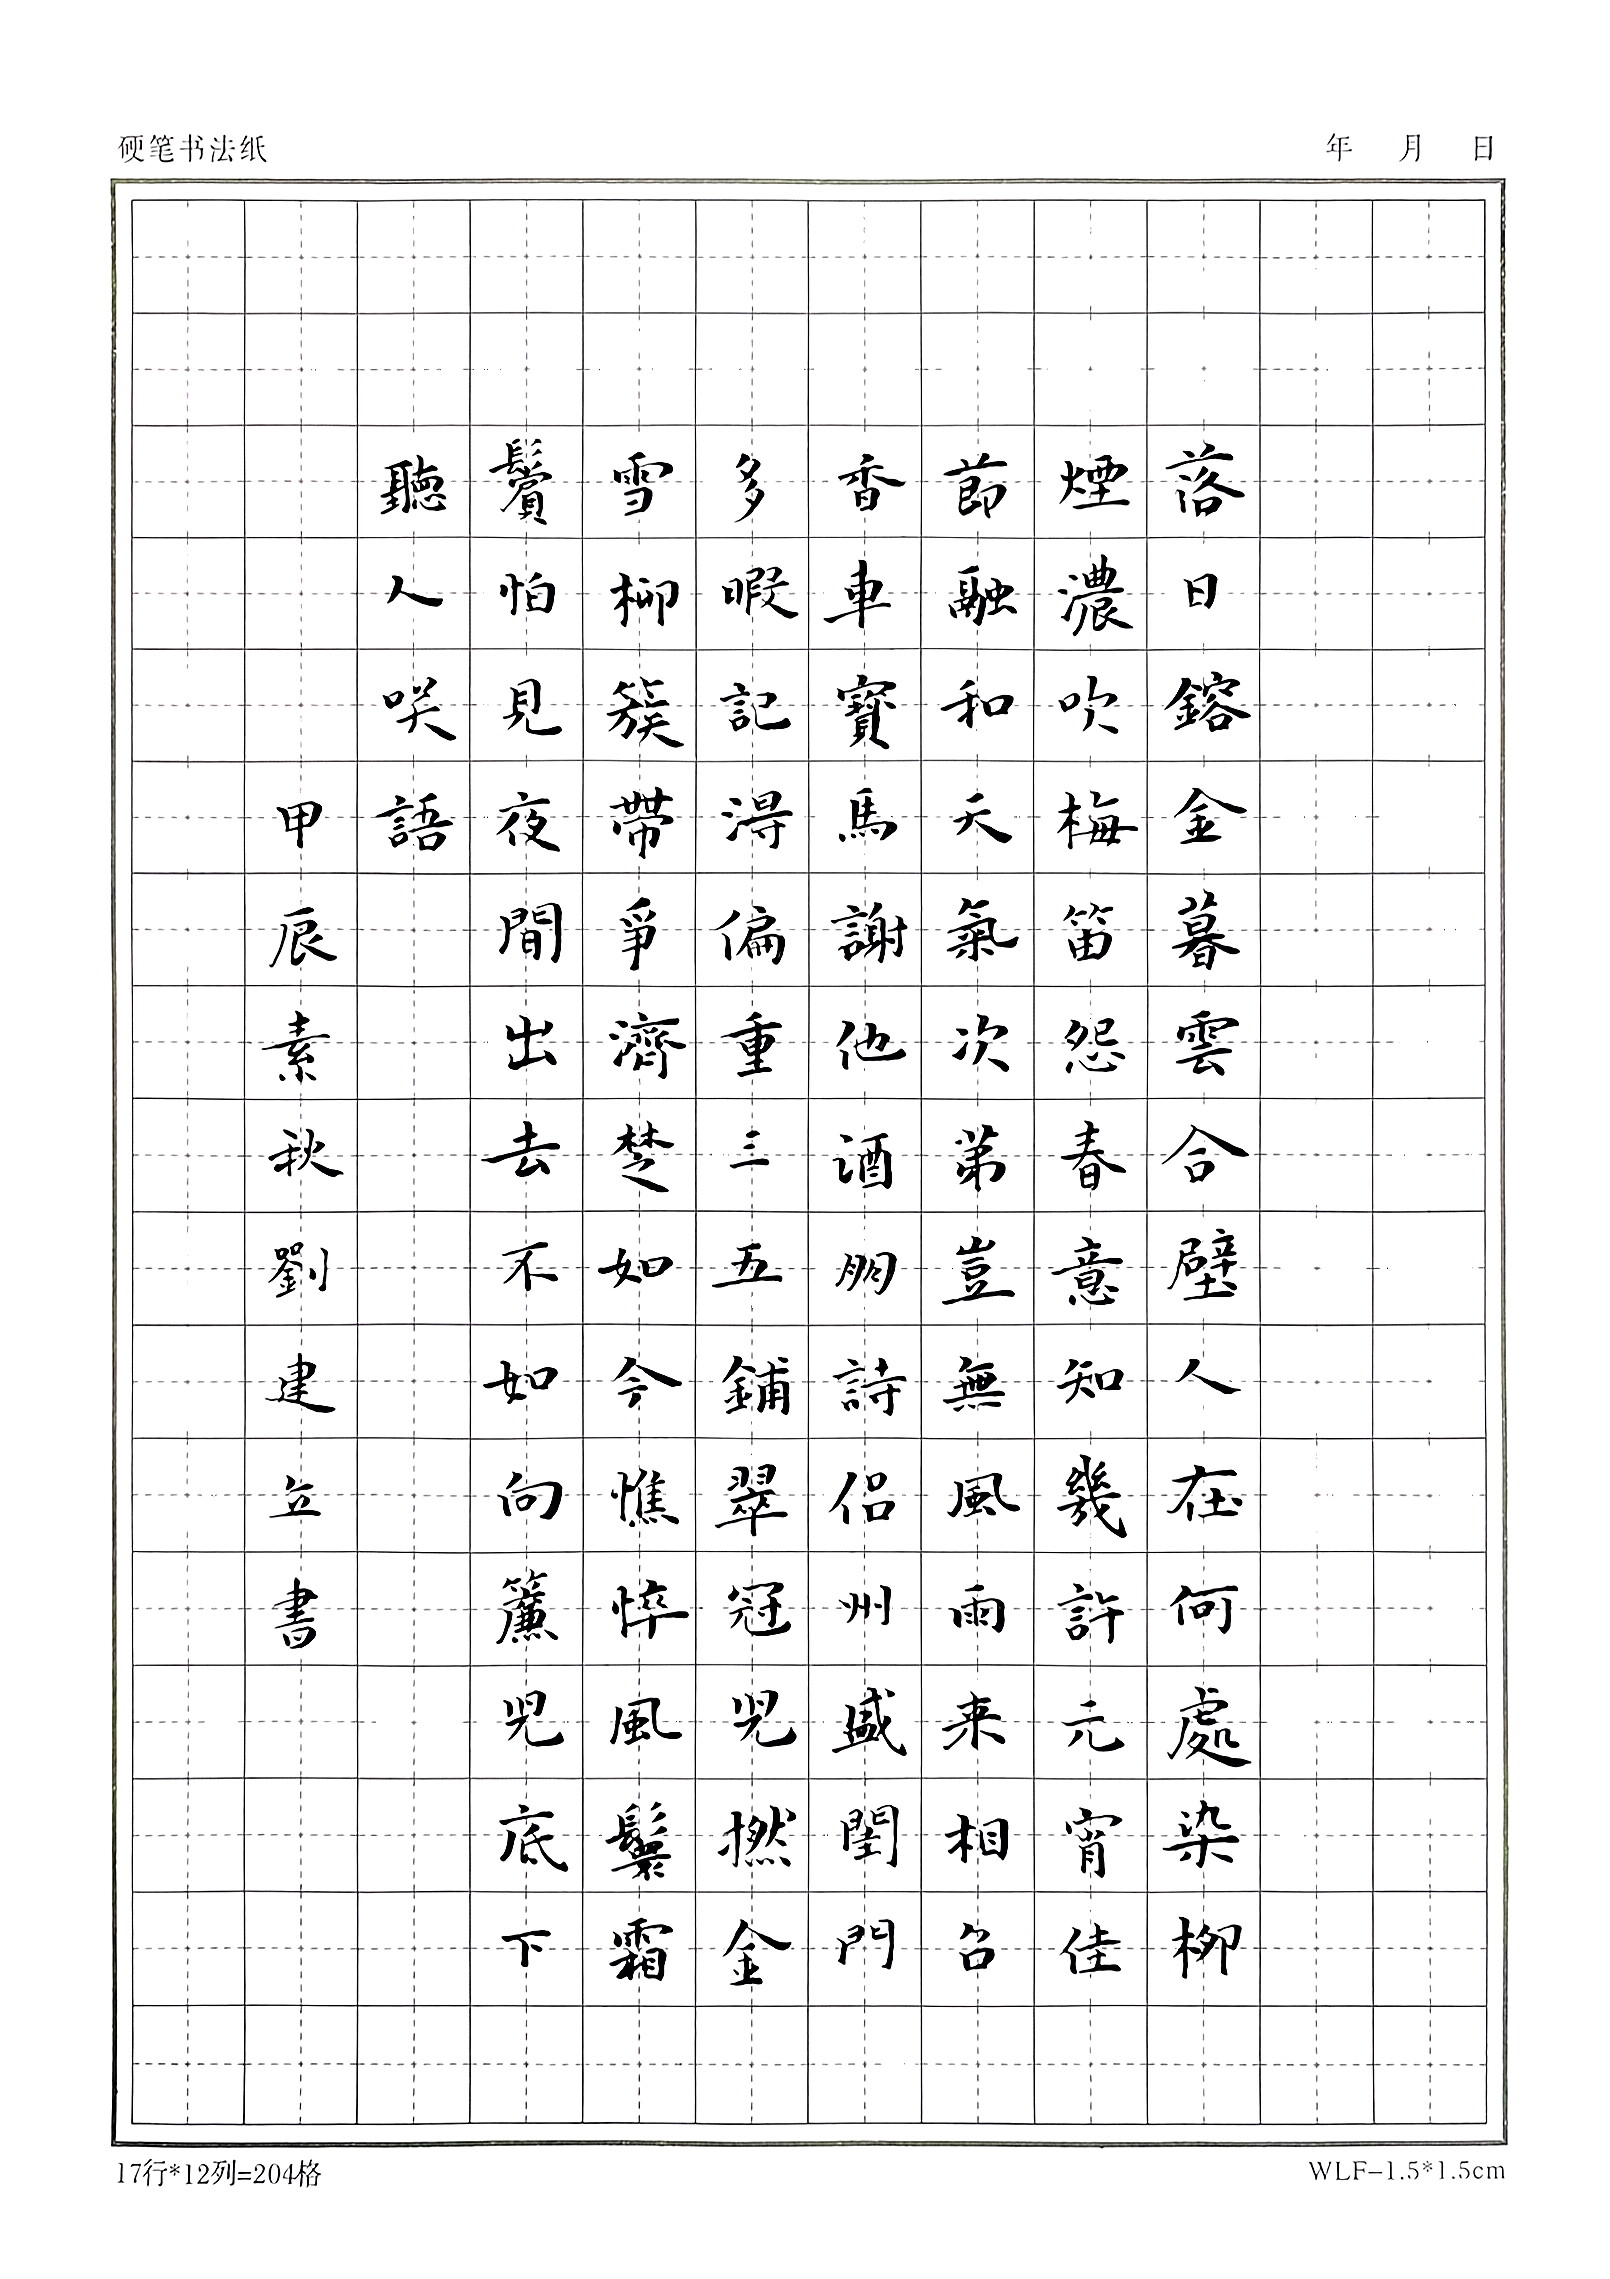 硬笔书法纸
年 月 日
落日鎔金暮雲合壁人在何處染柳
煙濃吹梅笛怨春意知幾許元宵佳
節融和天氣次第豈無風雨来相召
香車寶馬謝他酒朋詩侶州盛閨門
多暇記得偏重三五鋪翠冠兒撚金
雪柳簇帶爭濟楚如今憔悴風鬟霜
鬢怕見夜間出去不如向簾兒底下
聽人咲語
甲辰素秋劉建立書
17行*12列=204格
WLF-1.5*1.5cm